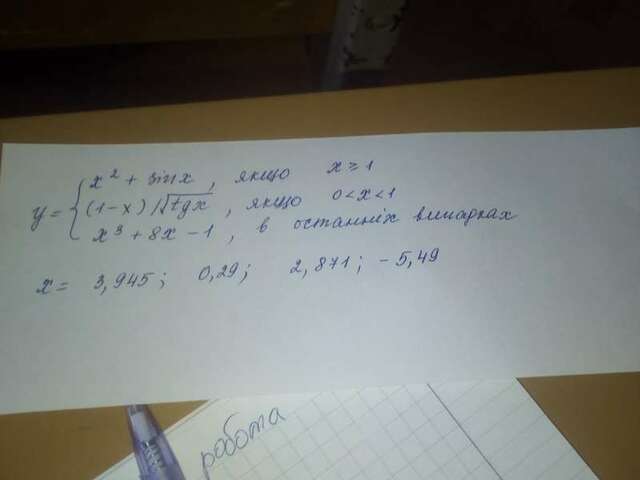 y = { x² + sin x, якщо x ≥ 1
(1-x) / √tgx, якщо 0 < x < 1
x³ + 8x - 1, в останніх випадках
x = 3,945; 0,29; 2,871; -5,49
робота